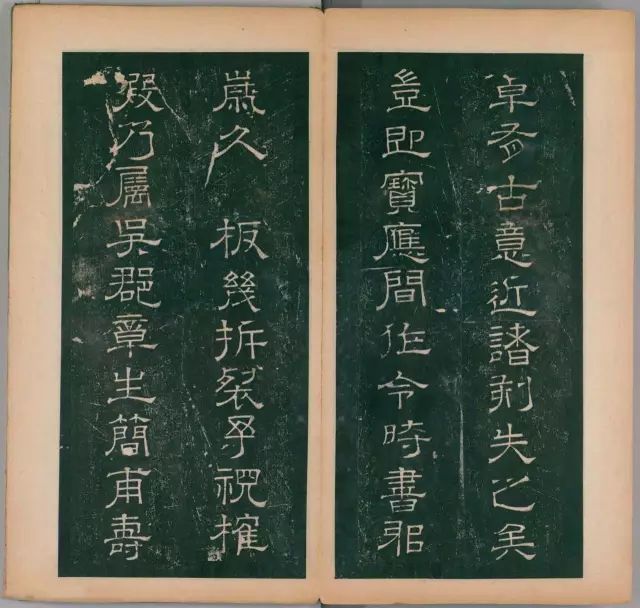 卓有古意近諸刻失之矣
豈即寶應間作令時書邪
歲久 板幾拆裂予視搉
暇乃屬吳郡章生簡甫壽